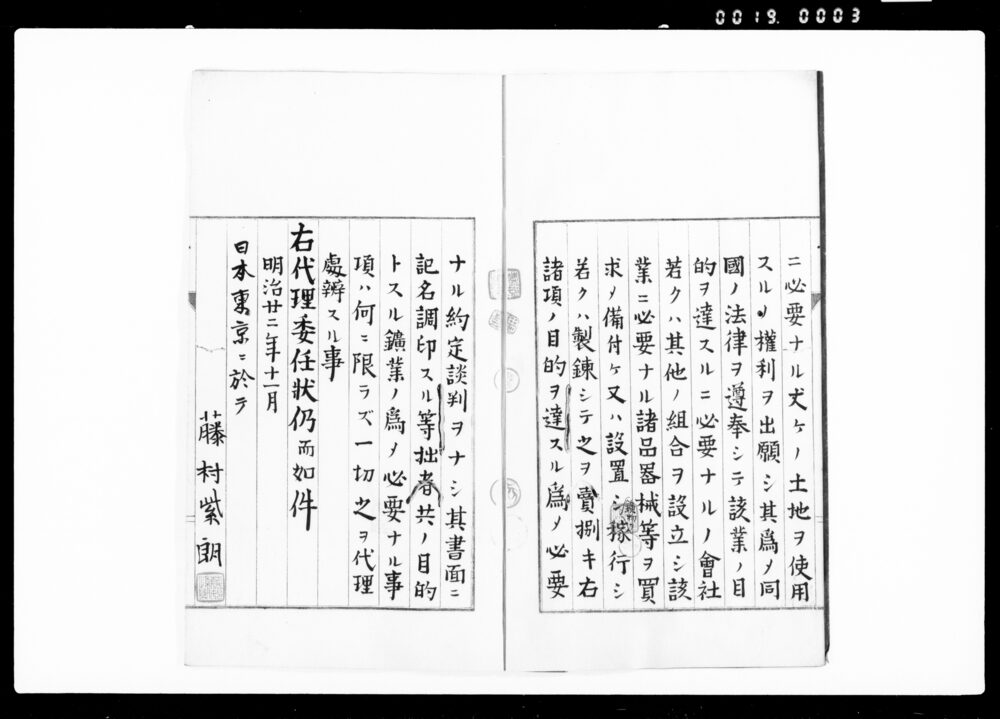 0019 0003
ニ必要ナル丈ケノ土地ヲ使用
スルノ權利ヲ出願シ其爲メ同
國ノ法律ヲ遵奉シテ該業ノ目
的ヲ達スルニ必要ナルノ會社
若クハ其他ノ組合ヲ設立シ該
業ニ必要ナル諸品器械等ヲ買
求メ備付ケ又ハ設置シ稼行シ
若クハ製鍊シテ之ヲ賣捌キ右
諸項ノ目的ヲ達スル爲メ必要
ナル約定談判ヲナシ其書面ニ
記名調印スル等拙者共ノ目的
トスル鑛業ノ爲メ必要ナル事
項ハ何ニ限ラズ一切之ヲ代理
處辨スル事
右代理委任狀仍而如件
明治廿二年十一月
日本東京ニ於テ
藤村紫朗